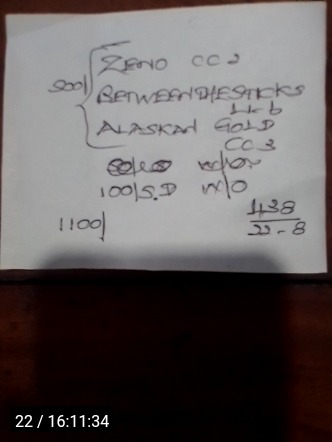 ZENO CC 2
500/
BETWEENTHESTICKS
11-6
ALASKAN GOLD
CC 3
W/O
100/S.D W/O
1100/
438
22-8
22 / 16:11:34